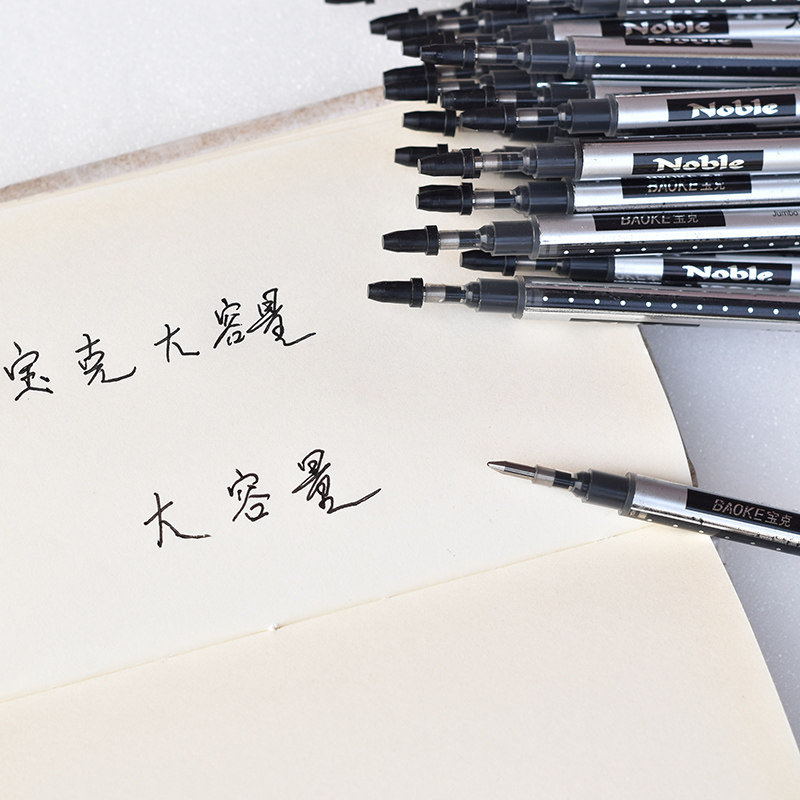 Noble
Noble
Noble
Noble
BAOKE宝克
BAOKE宝克
Jumbo
Noble
宝克大容量
大容量
BAOKE宝克